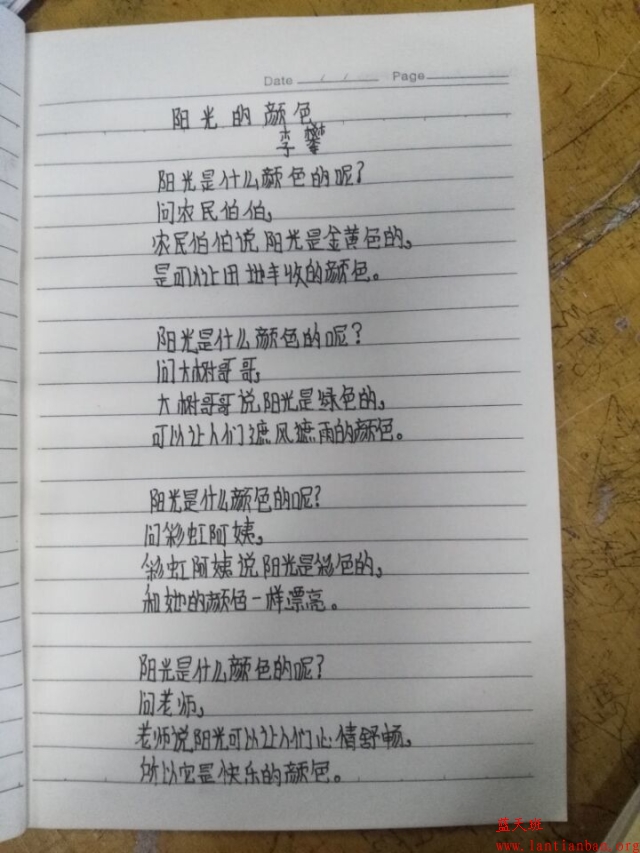 Date / / Page
阳光的颜色
李攀
阳光是什么颜色的呢?
问农民伯伯,
农民伯伯说阳光是金黄色的,
是可以让田地丰收的颜色。
阳光是什么颜色的呢?
问大树哥哥,
大树哥哥说阳光是绿色的,
可以让人们遮风遮雨的颜色。
阳光是什么颜色的呢?
问彩虹阿姨,
彩虹阿姨说阳光是彩色的,
和她的颜色一样漂亮。
阳光是什么颜色的呢?
问老师,
老师说阳光可以让人们心情舒畅,
所以它是快乐的颜色。
蓝天班
www.lantianban.org